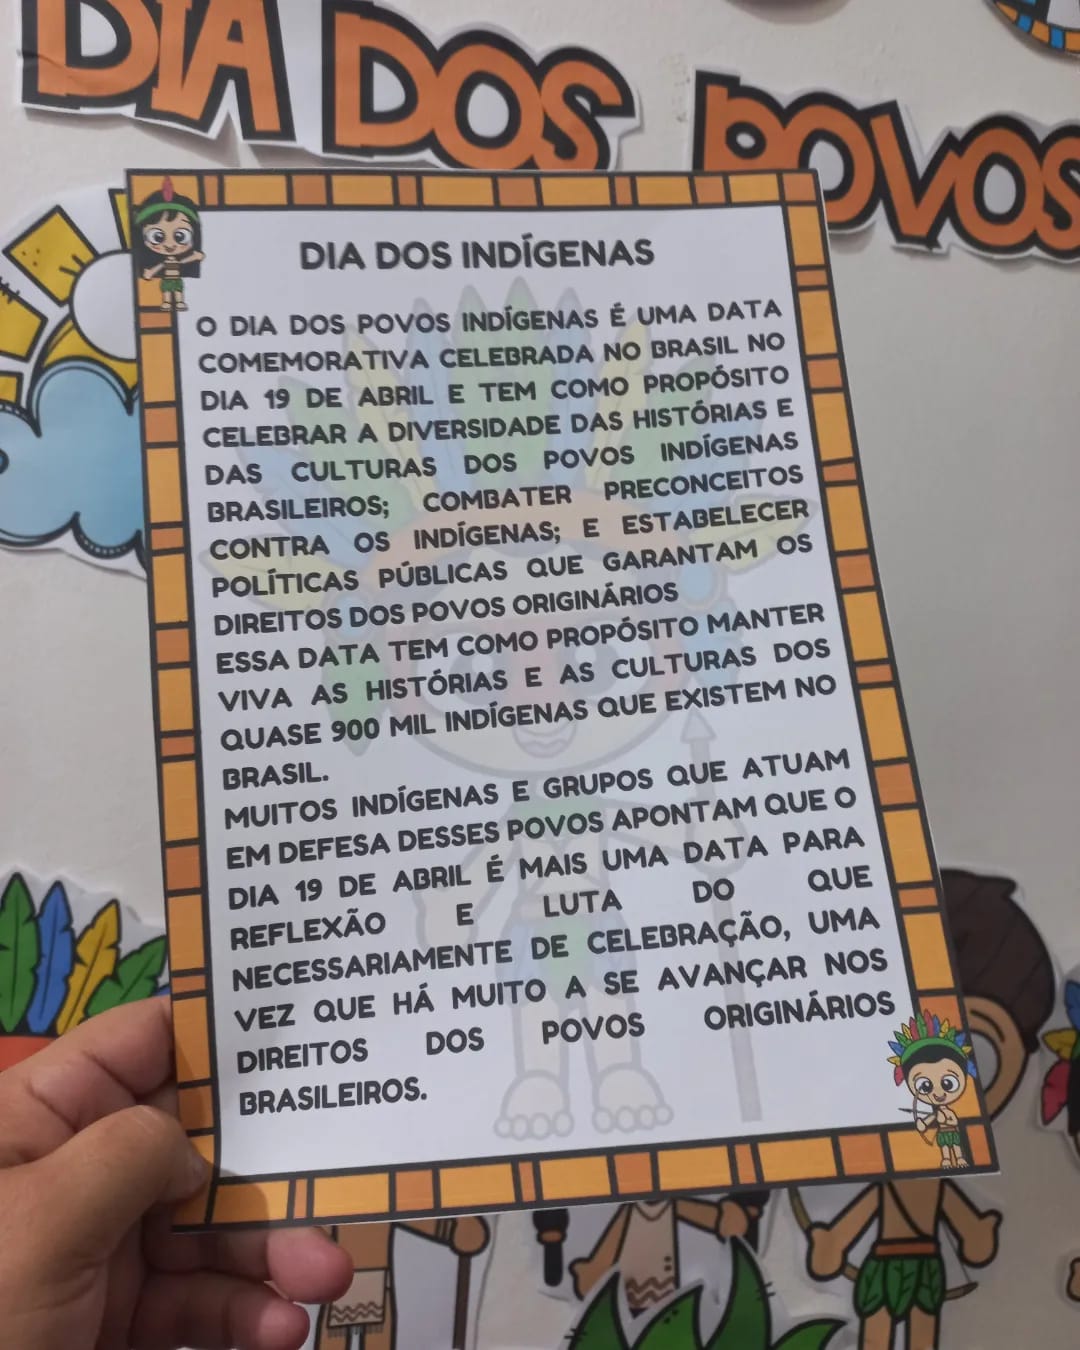 DIA DOS POVOS
DIA DOS INDÍGENAS
O DIA DOS POVOS INDÍGENAS É UMA DATA
COMEMORATIVA CELEBRADA NO BRASIL NO
DIA 19 DE ABRIL E TEM COMO PROPÓSITO
CELEBRAR A DIVERSIDADE DAS HISTÓRIAS E
DAS CULTURAS DOS POVOS INDÍGENAS
BRASILEIROS; COMBATER PRECONCEITOS
CONTRA OS INDÍGENAS; E ESTABELECER
POLÍTICAS PÚBLICAS QUE GARANTAM OS
DIREITOS DOS POVOS ORIGINÁRIOS
ESSA DATA TEM COMO PROPÓSITO MANTER
VIVA AS HISTÓRIAS E AS CULTURAS DOS
QUASE 900 MIL INDÍGENAS QUE EXISTEM NO
BRASIL.
MUITOS INDÍGENAS E GRUPOS QUE ATUAM
EM DEFESA DESSES POVOS APONTAM QUE O
DIA 19 DE ABRIL É MAIS UMA DATA PARA
REFLEXÃO E LUTA DO QUE
NECESSARIAMENTE DE CELEBRAÇÃO, UMA
VEZ QUE HÁ MUITO A SE AVANÇAR NOS
DIREITOS DOS POVOS ORIGINÁRIOS
BRASILEIROS.